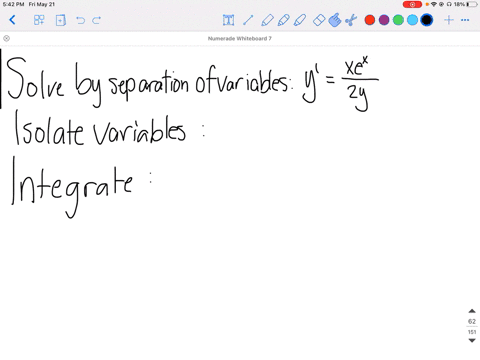 5:42 PM Fri May 21
18%
Numerade Whiteboard 7
Solve by separation of variables: y' = xe^x / 2y
Isolate variables :
Integrate :
62
151